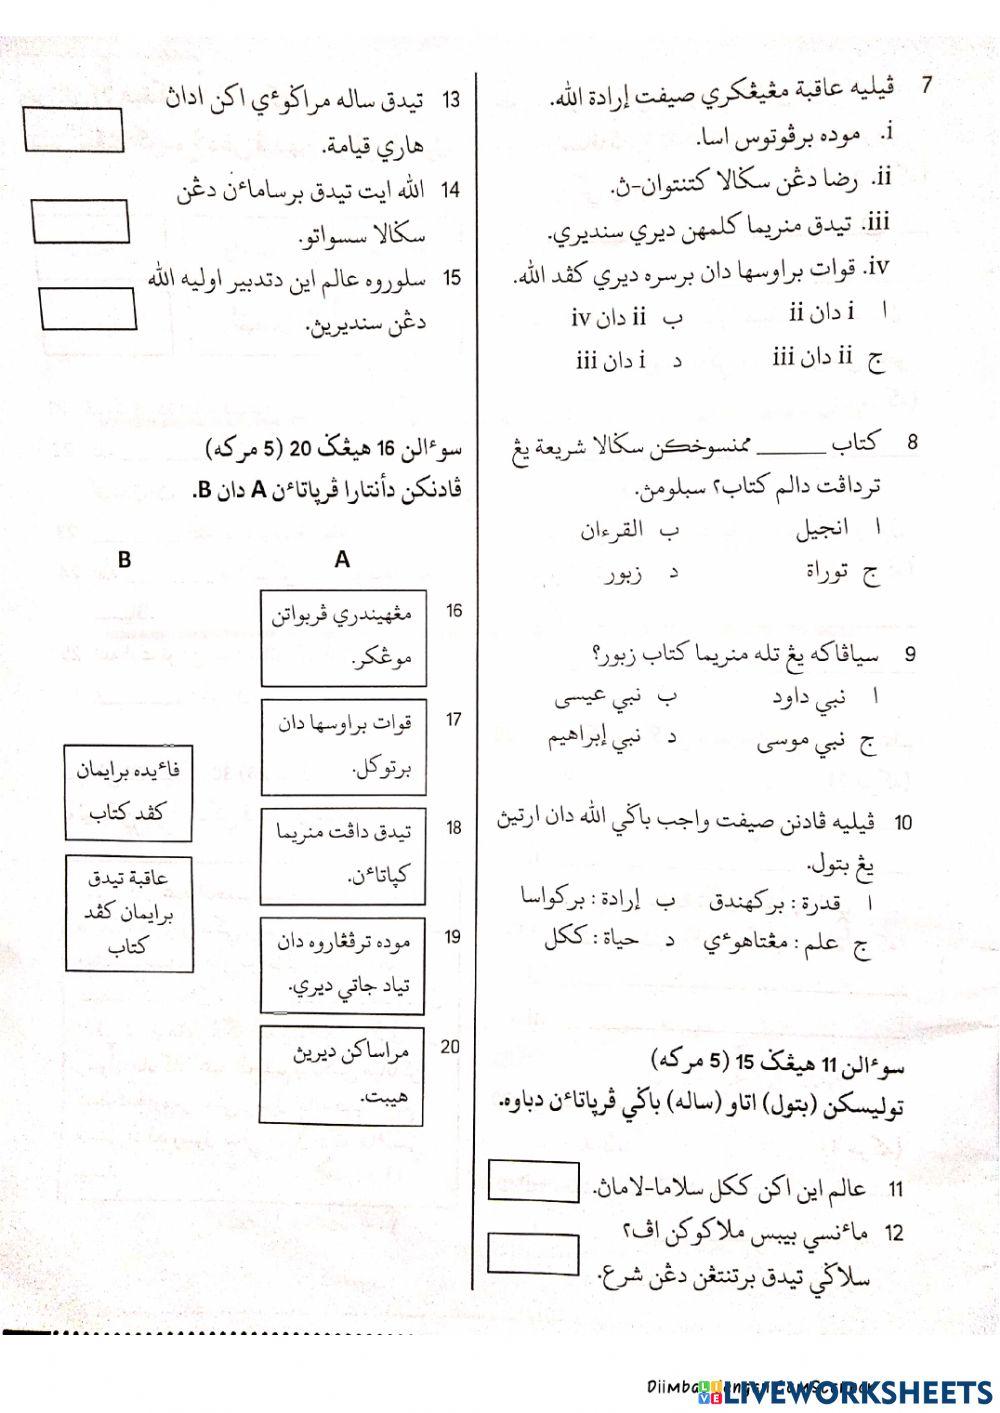 7 ڤيليه عاقبة مڠيڠكري صيفت إرادة الله.
i. موده برڤوتوس اسا.
ii. رضا دڠن سݢالا كتنتوان-ڽ.
iii. تيدق منريما كلمهن ديري سنديري.
iv. قوات براوسها دان برسره ديري كڤد الله.
ا i دان ii ب ii دان iv
ج ii دان iii د i دان iii
8 كتاب ______ ممنسوخكن سݢالا شريعة يڠ
ترداڤت دالم كتاب٢ سبلومڽ.
ا انجيل ب القرءان
ج توراة د زبور
9 سياڤاكه يڠ تله منريما كتاب زبور؟
ا نبي داود ب نبي عيسى
ج نبي موسى د نبي إبراهيم
10 ڤيليه ڤادنن صيفت واجب باݢي الله دان ارتيڽ
يڠ بتول.
ا قدرة : بركهندق ب إرادة : بركواسا
ج علم : مڠتاهوءي د حياة : ككل
سوءالن 11 هيڠݢ 15 (5 مركه)
توليسكن (بتول) اتاو (ساله) باݢي ڤرڽاتاءن دباوه.
11 عالم اين اكن ككل سلاما-لاماڽ.
12 ماءنسي بيبس ملاكوكن اڤ٢
سلاݢي تيدق برتنتڠن دڠن شرع.
13 تيدق ساله مراݢوءي اكن اداڽ
هاري قيامة.
14 الله ايت تيدق برساماءن دڠن
سݢالا سسواتو.
15 سلوروه عالم اين دتدبير اوليه الله
دڠن سنديريڽ.
سوءالن 16 هيڠݢ 20 (5 مركه)
ڤادنكن دأنتارا ڤرڽاتاءن A دان B.
A B
16 مڠهيندري ڤربواتن
موڠكر.
17 قوات براوسها دان
برتوكل.
18 تيدق داڤت منريما
كڽاتاءن.
19 موده ترڤڠاروه دان
تياد جاتي ديري.
20 مراساكن ديريڽ
هيبت.
فاءيده برايمان
كڤد كتاب
عاقبة تيدق
برايمان كڤد
كتاب
LIVEWORKSHEETS